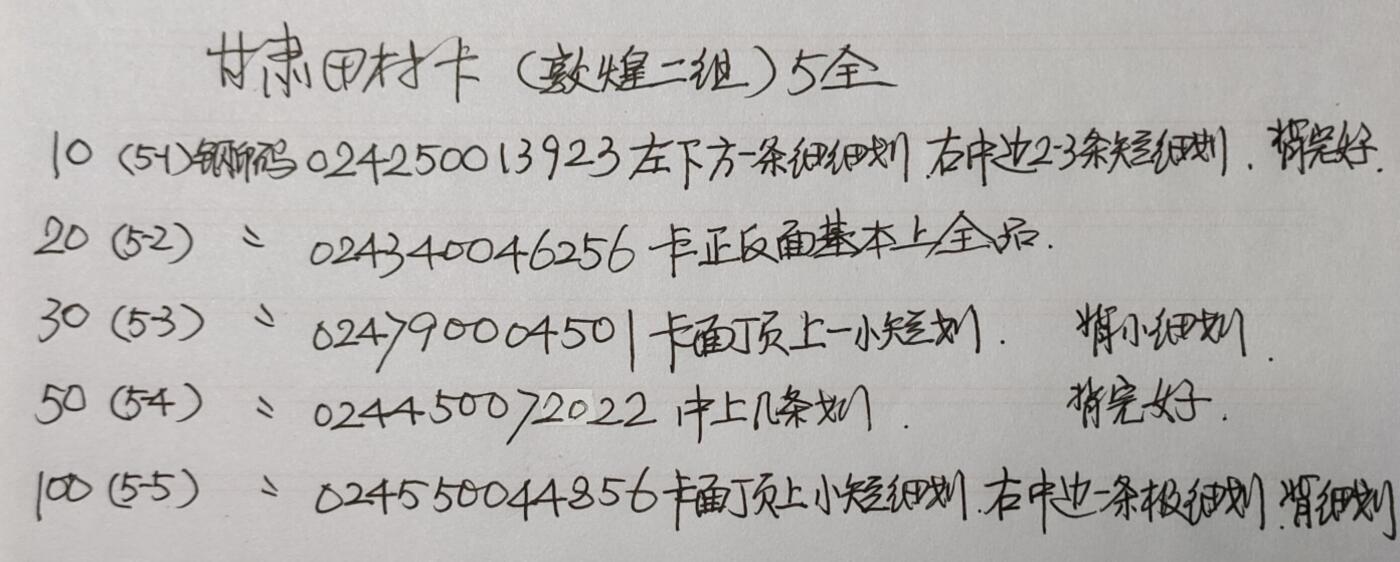 甘肃田村卡（敦煌二组）5全
10 (5-1) 钢印码 024250013923 左下方一条细细划 右中边2-3条短细划. 背完好.
20 (5-2) 〃 024340046256 卡正反面基本上全品.
30 (5-3) 〃 024790004501 卡面顶上一小短划. 背小细划.
50 (5-4) 〃 024450072022 中上几条划. 背完好.
100 (5-5) 〃 024550044856 卡面顶上小短细划. 右中边一条极细划. 背细划